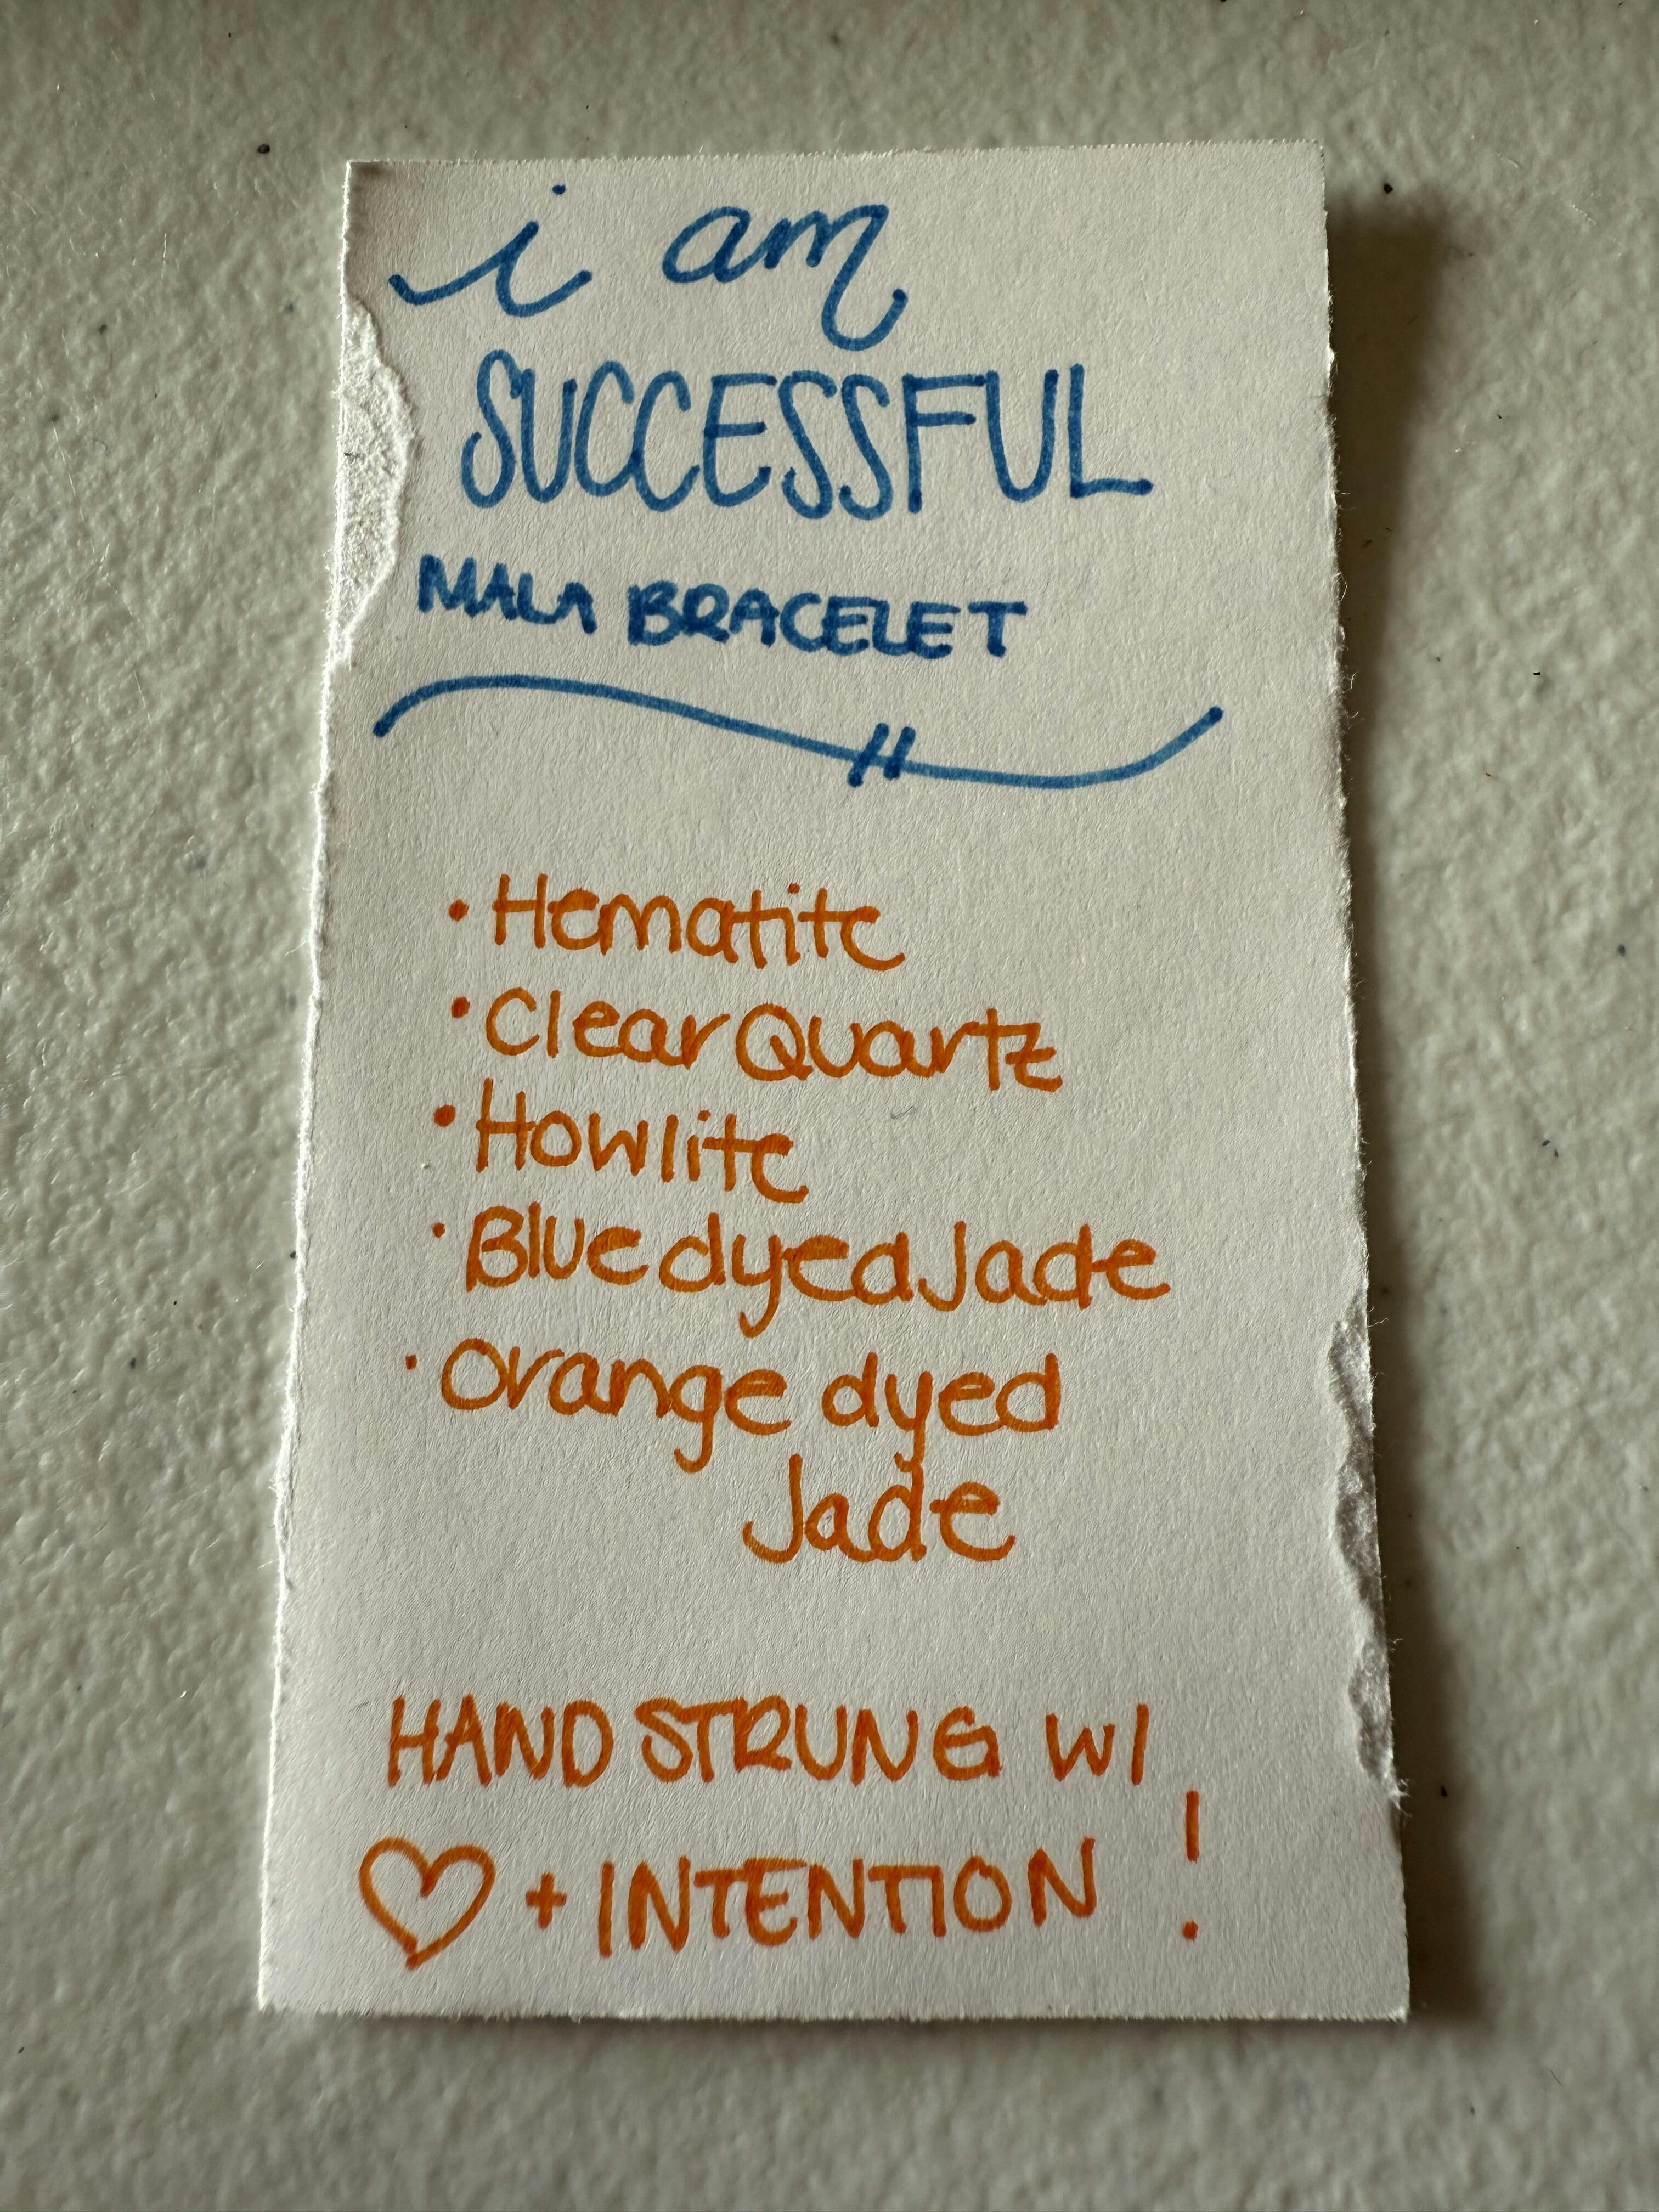 i am
SUCCESSFUL
MALA BRACELET
• Hematite
• Clear Quartz
• Howlite
• Blue dyed Jade
• Orange dyed
Jade
HAND STRUNG W/
♡ + INTENTION !